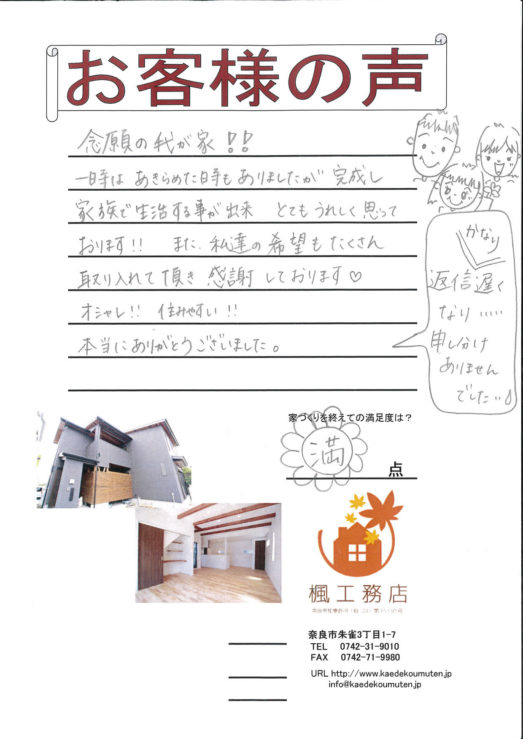 お客様の声
念願の我が家!!
一時は あきらめた時も ありましたが 完成し
家族で生活する事が出来 とてもうれしく思って
おります!! また、私達の希望もたくさん
取り入れて頂き 感謝しております♡
オシャレ!! 住みやすい!!
本当にありがとうございました。
かなり
返信遅く
なり……
申し分け
ありません
でした…
家づくりを終えての満足度は?
満
点
楓工務店
奈良市朱雀3丁目1-7
TEL 0742-31-9010
FAX 0742-71-9980
URL http://www.kaedekoumuten.jp
info@kaedekoumuten.jp